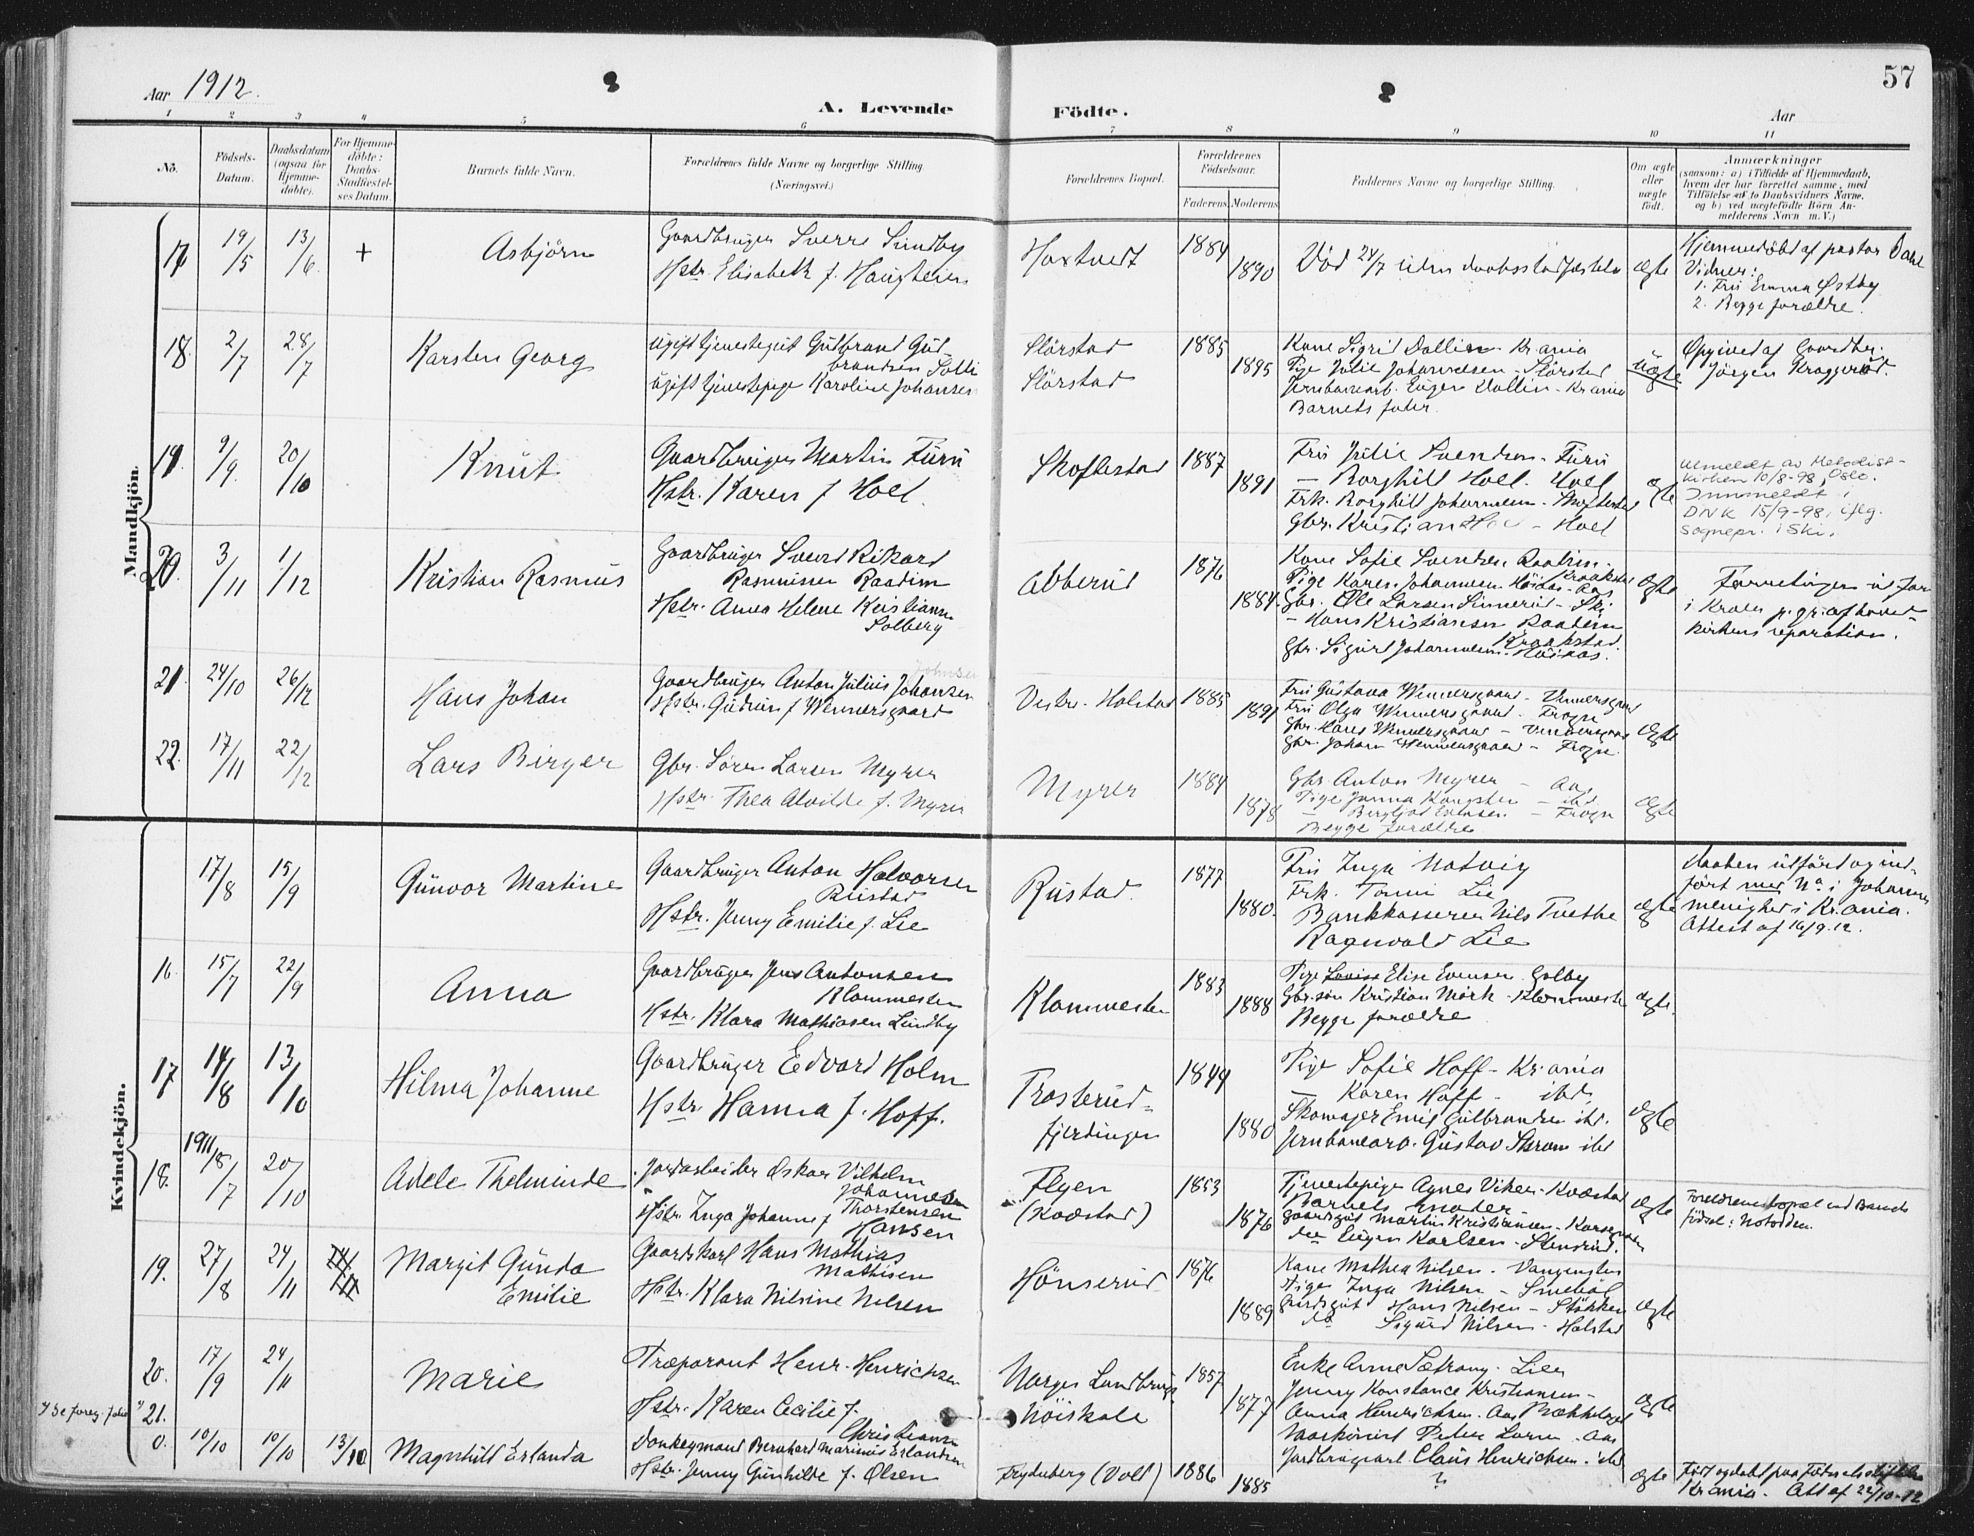 57
Aar 1912.
A. Levende Födte.
Aar
1 2 3 4 5 6 7 8 9 10 11
Nö.
Födsels-Datum.
Daabsdatum (ogsaa for Hjemme-döbte).
For Hjemme-döbte: Daabs-Stadfæstel-ses Datum.
Barnets fulde Navn.
Forældrenes fulde Navne og borgerlige Stilling. (Næringsvei.)
Forældrenes Bopæl.
Forældrenes Födselsaar.
Faderens Moderens
Faddernes Navne og borgerlige Stilling.
Om ægte eller uægte födt.
Anmærkninger
(saasom: a) i Tilfælde af Hjemmedaab,
hvem der har forrettet samme, med
Tilföielse af to Daabsvidners Navne,
og b) ved uægtefödte Börn An-
melderens Navn m. V.)
Mandkjön.
17 19/5 13/6 + Asbjörn
Gaardbruger Sverre Sundby
Hstr. Elisabeth f. Haugheien
Haxtvedt 1884 1890
Död 24/7 uden daabsstadfæstelse
ægte
Hjemmedöbt af pastor Dahl
Vidner:
1. Fru Emma Østby
2. Begge forældre.
18. 2/7 28/7 Karsten Georg
ugift tjenestegut Gulbrand Gul-
brandsen Solli
ugift tjenestepige Karoline Johansen
Störstad
Störstad
1885 1895
Kone Sigrid Dallin - Kr.ania
Pige Julie Johannesen - Störstad
Jernbanearb. Eugen Dallin - Kr.ania
Barnets fader.
uægte
Opgivet af Gaardbr.
Jörgen Kroggerud.
19 9/9 20/10 Knut
Gaardbruger Martin Furu
Hstr. Karen f Hoel.
Skoftestad 1887 1891
Fru Julie Svendsen - Furu
— Borghild Hoel. Hoel
Frk. Borghild Johannesen -
Gbr. Kristian Hoel - Hoel
ægte
Utmeldt av Metodist-
kirken 10/8-98, Oslo.
Innmeldt i
DNK 15/9-98, iflg.
sognepr. i Ski.
20. 3/11 1/12 Kristian Rasmus
Gaardbruger Svend Rikard
Rasmussen Raadim
Hstr. Anna Helene Kristiansen
Solberg
Abberud 1876 1884.
Kone Sofie Svendsen Raadim -
Kraakstad
Pige Karen Johannesen Höiaas - Aas
Gbr. Ole Larsen Sinnerud - Ski
- Hans Kristiansen Raadim
Kraakstad.
Gbr. Sigurd Johannesen - Höiaas.
ægte
Forretningen utfört
i Kroer p. gr. af hoved-
kirkens reparation.
21. 24/10 26/12 Hans Johan
Johnsen
Gaardbruger Anton Julius Johansen
Hstr. Gudrun f Wennersgaard
Vestre Holstad 1885 1891
Fru Gustava Wennersgaard -
Fru Olga Wennersgaard - Frogn
Gbr. Hans Wennersgaard -
Gbr. Johan Wennersgaard - Frogn.
ægte
22. 17/11 22/12 Lars Birger
Gbr. Sören Larsen Myrer
Hstr. Thea Alvilde f. Myrer
Myrer 1884 1878
Gbr. Anton Myrer - Aas
Pige Janna Kongsten - ibd
— - Frogn
Begge forældre
ægte
Kvindekjön.
17/8 15/9 Gunvor Martine
Gaardbruger Anton Halvorsen
Rustad
Hstr. Jenny Emilie f. Lie
Rustad. 1877 1880.
Fru Inga Natvig
Frk. Tomi Lie
Bankkasserer Nils Tvethe
Ragnvald Lie
ægte
Daaben utfört og ind-
fört med No i Johannes
menighed i Kr.ania.
Attest af 16/9.12.
16. 15/7 22/9 Anna
Gaardbruger Jens Antonsen
Klommesten
Hstr. Klara Mathiasen Sundby
Klommesten 1883 1888
Pige Lovise Elise Evensen Galby
Gbr.sön Kristian Mörk - Klommesten
Begge forældre
ægte.
17 14/8 13/10 Hilma Johanne
Gaardbruger Edvard Holm
Hstr. Hanna f. Hoff.
Trosterud-
fjerdingen
1844 1880
Pige Sofie Hoff - Kr.ania
— Karen Hoff - ibd.
Skomager Emil Gulbrandsen ibd.
Jernbanearb. Gustav Skram ibd
ægte
18. 1911 18/7 20/10 Adele Thelminde
Jordarbeider Oskar Vilhelm
Johannesen
Thorstensen
Hstr. Inga Johanne f
Hansen
Flyen
(Kvæstad)
1853 1876
Tjenestepige Agnes Viken - Kvæstad
Barnets moder -
Gaardsgut Martin Kristiansen - Korsegaarden
do Eugen Karlsen - Stenrud.
ægte
Forældrenes bopæl ved Barnets
födsel: Notodden.
19. 27/8 24/11 Margit Gunda
Emilie
Gaardskarl Hans Mathias
Mathisen
Hstr. Klara Nilsine Nilsen
Hönserud 1876 1889
Kone Mathea Nilsen - Vangensten
Pige Inga Nilsen - Smeböl
Gaardsgut Hans Nilsen - Stökken
do Sigurd Nilsen - Holstad
ægte
20. 17/9 24/11 Marie
Træparant Henr. Henrichsen
Hstr. Karen Cecilie f.
Christiansen
Norges Landbrugs
höiskole
1857 1877
Enke Anne Sætrang - Lien
Jenny Konstance Kristiansen -
Anna Henrichsen - Aas
Maskinist Peter Larsen - Aas
Jordbrugsarb Claus Henrichsen - ibd
ægte
Se foreg. folio "21.
0. 10/10 10/10 13/10 Magnhild Erlanda
Donkeymand Bernhard Marinius Erlandsen
Hstr. Jenny Gunhilde f. Olsen
Frydenberg (Vold) 1886 1885
?
ægte
Födt og döbt paa Födselsstiftelsen
Kr.ania. Att af 22/10-12